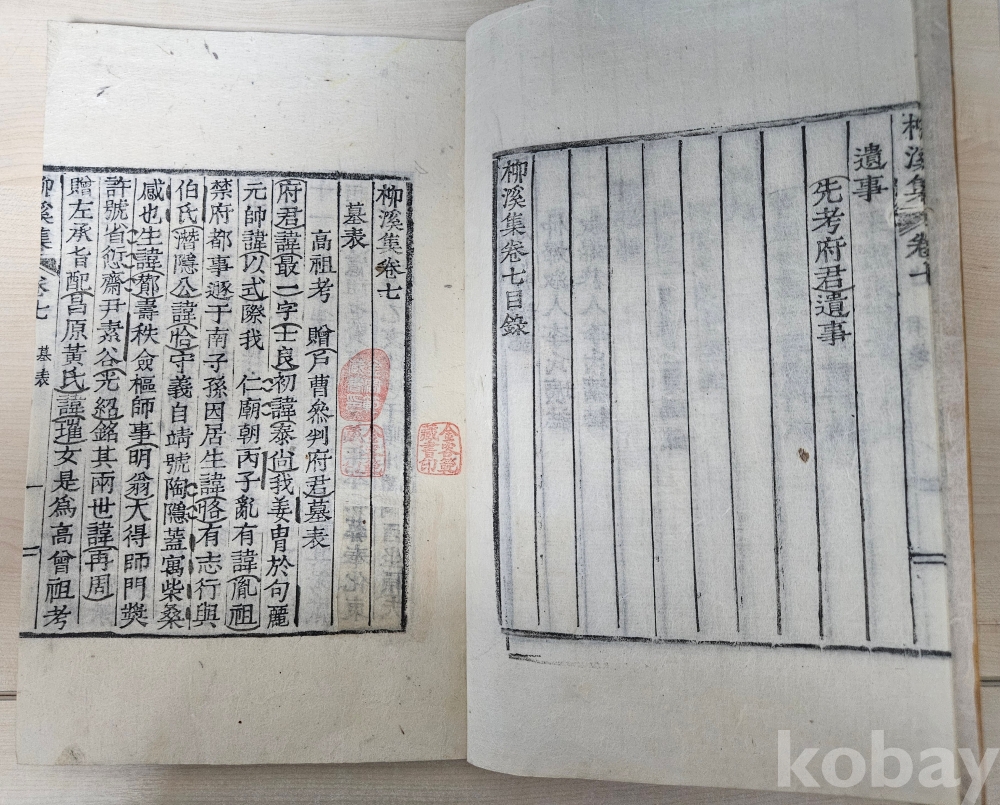 柳溪集 卷七
遺事
先考府君遺事
柳溪集卷七目錄
柳溪集卷七
墓表
高祖考 贈戶曹參判府君墓表
府君諱最一字士良初諱泰尙我姜胄於句麗
元帥諱以式際我 仁廟朝丙子亂有諱胤祖
禁府都事遯于南子孫因居生諱恪有志行與
伯氏潛隱公諱恰守義自靖號陶隱蓋寓柴桑
感也生諱壽秩僉樞師事明翁大得師門奬
許號省愆齋尹素谷光紹銘其兩世諱再周
贈左承旨配昌原黃氏諱女是爲高曾祖考
柳溪集 卷七 墓表 一
藏書印
kobay